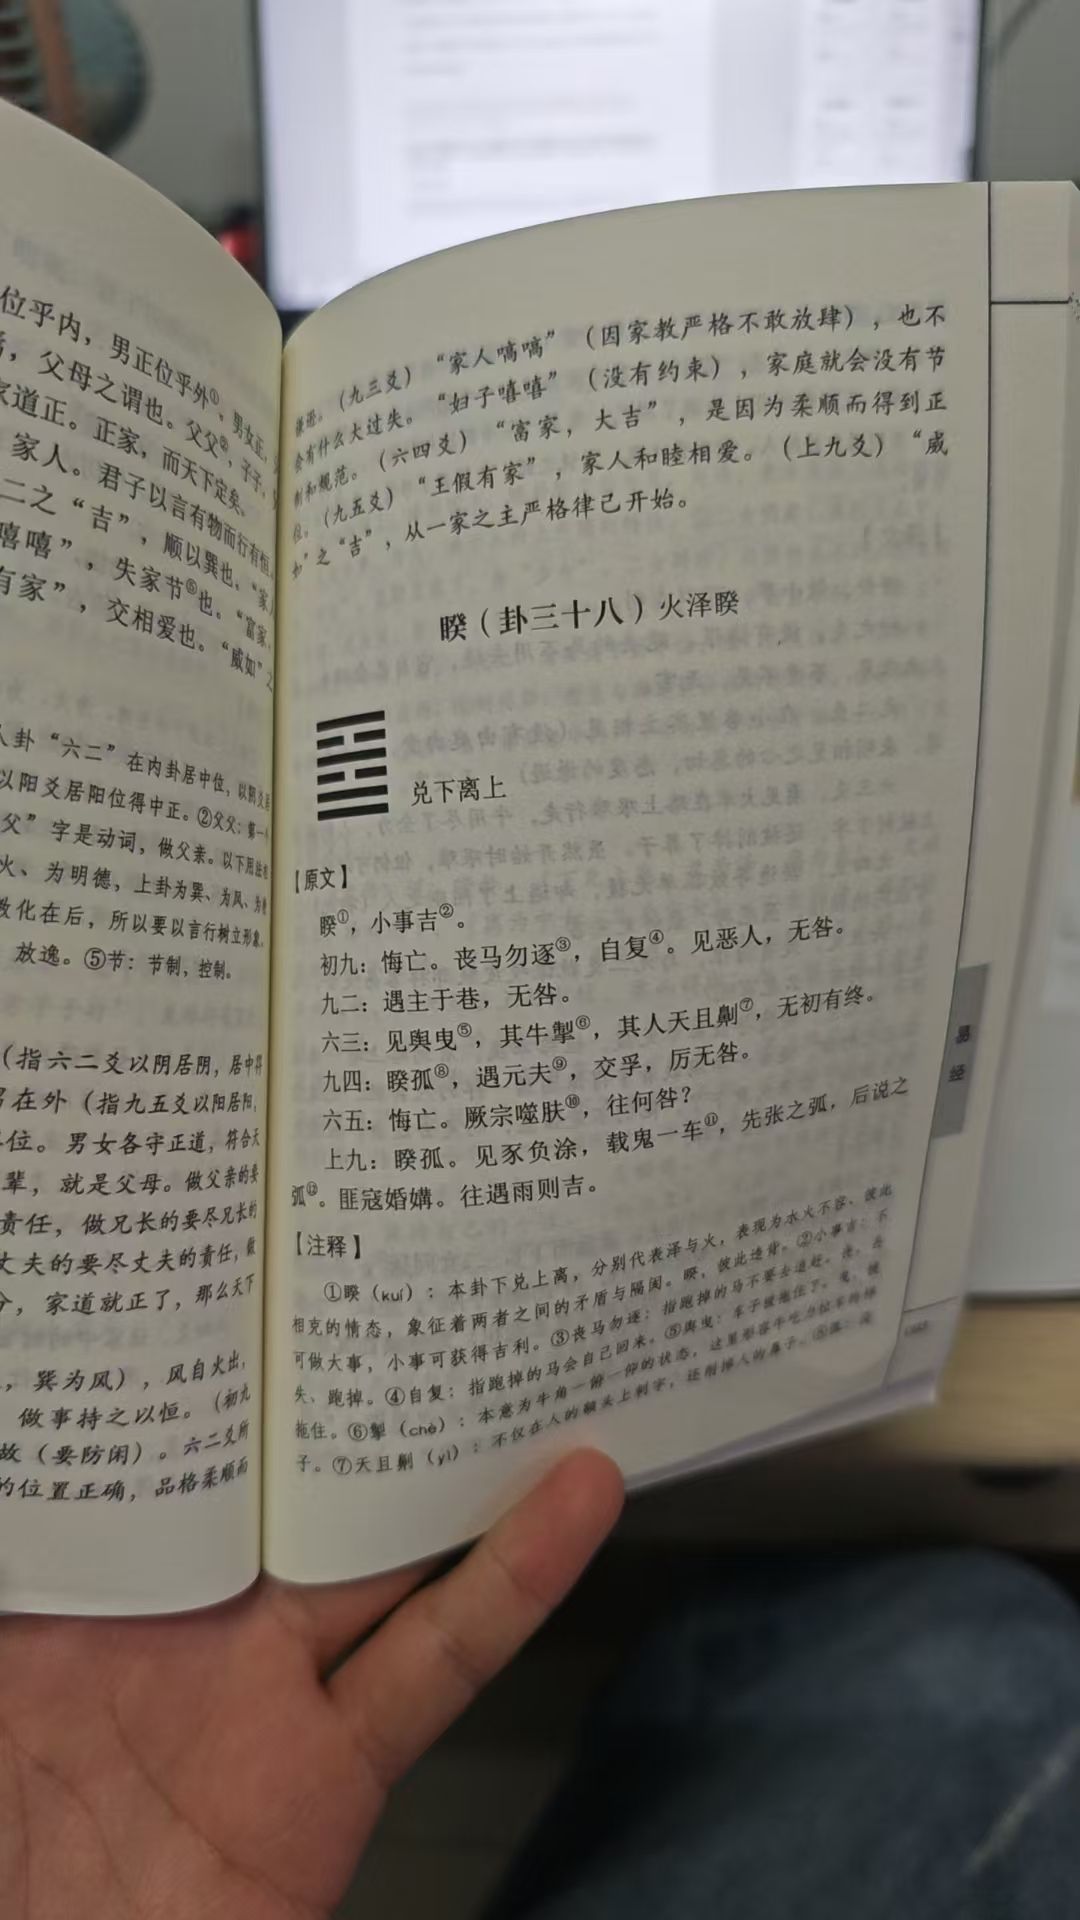 位乎内，男正位乎外①。男女正，
，父母之谓也。父父②，子子，
家道正。正家，而天下定矣。
家人。君子以言有物而行有恒。
二之“吉”，顺以巽也。“家人
嘻嘻”，失家节⑤也。“富家，
有家”，交相爱也。“威如”之
人卦“六二”在内卦居中位，以阴爻居
以阳爻居阳位得中正。②父父：第一个
父”字是动词，做父亲。以下用法
火、为明德，上卦为巽、为风、为
教化在后，所以要以言行树立形象。
放逸。⑤节：节制，控制。
（指六二爻以阴居阴，居中得
男在外（指九五爻以阳居阳，
位。男女各守正道，符合天
辈，就是父母。做父亲的要
责任，做兄长的要尽兄长的
丈夫的要尽丈夫的责任，做
分，家道就正了，那么天下
，巽为风），风自火出，
做事持之以恒。（初九
故（要防闲）。六二爻所
的位置正确，品格柔顺而
（九三爻）“家人嗃嗃”（因家教严格不敢放肆），也不
会有什么大过失。“妇子嘻嘻”（没有约束），家庭就会没有节
制和规范。（六四爻）“富家，大吉”，是因为柔顺而得到正
位。（九五爻）“王假有家”，家人和睦相爱。（上九爻）“威
如”之“吉”，从一家之主严格律己开始。
睽（卦三十八）火泽睽
兑下离上
【原文】
睽①，小事吉②。
初九：悔亡。丧马勿逐③，自复④。见恶人，无咎。
九二：遇主于巷，无咎。
六三：见舆曳⑤，其牛掣⑥，其人天且劓⑦，无初有终。
九四：睽孤⑧，遇元夫⑨，交孚，厉无咎。
六五：悔亡。厥宗噬肤⑩，往何咎？
上九：睽孤。见豕负涂，载鬼一车⑪，先张之弧，后说之
弧⑫。匪寇婚媾。往遇雨则吉。
【注释】
①睽（kuí）：本卦下兑上离，分别代表泽与火，表现为水火不容、彼此
相克的情态，象征着两者之间的矛盾与隔阂。睽，彼此违背。②小事吉：不
可做大事，小事可获得吉利。③丧马勿逐：指跑掉的马不要去追赶。丧，丢
失、跑掉。④自复：指跑掉的马会自己回来。⑤舆曳：车子被拖住了。曳，被
拖住。⑥掣（chè）：本意为牛角一俯一仰的状态，这里形容牛吃力拉车的样
子。⑦天且劓（yì）：不仅在人的额头上刺字，还削掉人的鼻子。⑧孤：
易经